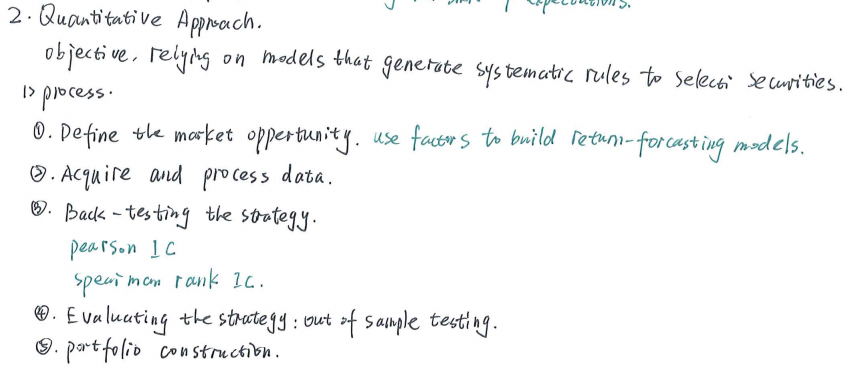 expectations.
2. Quantitative Approach.
objective, relying on models that generate systematic rules to select securities.
1> process.
①. Define the market oppertunity. use factors to build return-forcasting models.
②. Acquire and process data.
③. Back-testing the strategy.
pearson IC
spearman rank IC.
④. Evaluating the strategy: out of sample testing.
⑤. portfolio construction.